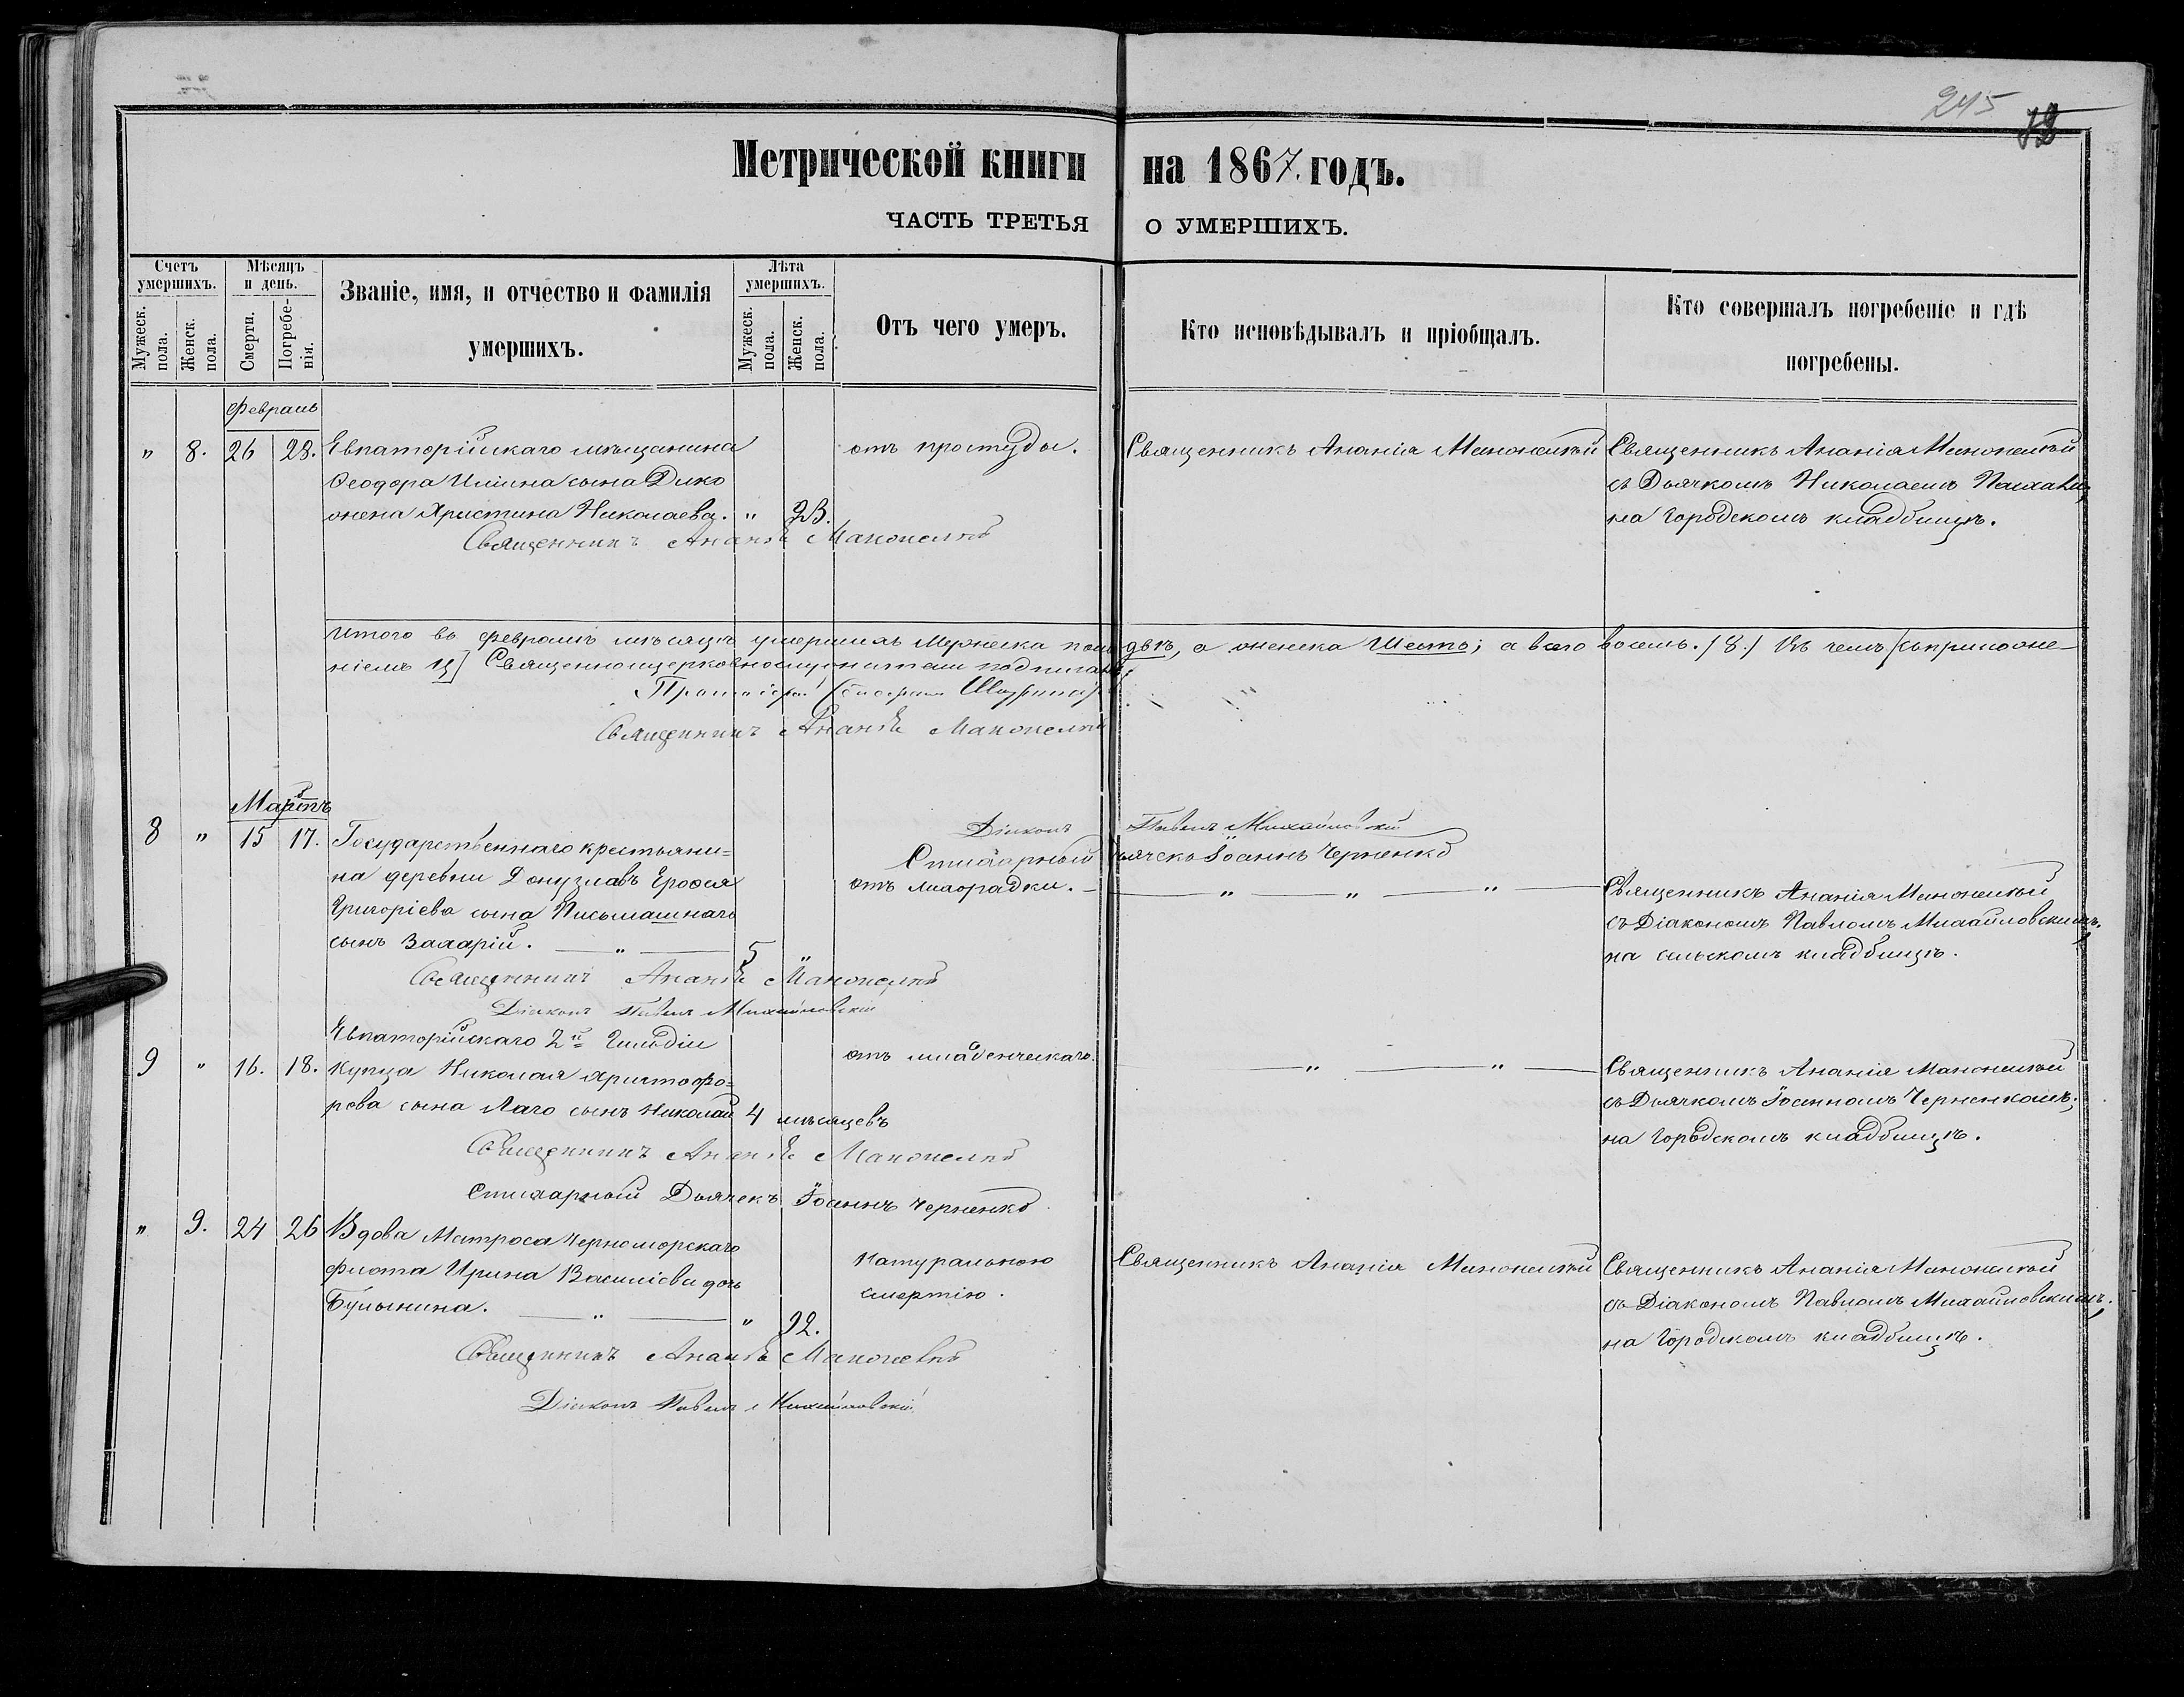 245
Метрической книги на 1867. годъ.
ЧАСТЬ ТРЕТЬЯ О УМЕРШИХЪ.
Счетъ умершихъ.
Мужеск. пола.
Женск. пола.
Мѣсяцъ и день.
Смерти.
Погребенія.
Званіе, имя, и отчество и фамилія
умершихъ.
Лѣта умершихъ.
Мужеск. пола.
Женск. пола.
Отъ чего умеръ.
Кто исповѣдывалъ и пріобщалъ.
Кто совершалъ погребеніе и гдѣ
погребены.
Февраль
" 8. 26 28. Евпаторійскаго мѣщанина
Ѳеодора Ильина сына Дико
жена Христина Николаева. " 23.
отъ простуды.
Священникъ Ананія Маножскій
Священникъ Ананія Маножскій
съ Дьячкомъ Николаемъ
на Городскомъ кладбищѣ.
Священникъ Ананія
Итого въ Февралѣ мѣсяцѣ умершихъ Мужеска пола двѣ, а женска Шесть; а всего восемь. /8./ Въ чемъ /съ приложе-
ніемъ Священноцерковнослужители подписались:
Протоіерей
Священникъ Ананія
Мартъ
8 " 15 17. Государственнаго крестьяни=
на деревни Донузлавъ Ероѳея
Григоріева сына Письмашнаго
сынъ Захарій. " 5 "
Діаконъ Павелъ Михайловскій
Стихарный Дьячекъ Іоаннъ Черненко
отъ лихорадки. " " "
Священникъ Ананія Маножскій
съ Діакономъ Павломъ Михайловскимъ,
на сельскомъ кладбищѣ.
Священникъ Ананія
Діаконъ Павелъ Михайловскій
Евпаторійскаго 2й Гильдіи
9 " 16. 18. купца Николая Христофо=
рова сына Лаго сынъ Николай 4 мѣсяцевъ
отъ младенческаго.
" "
Священникъ Ананія Маножскій
съ Дьячкомъ Іоанномъ Черненкомъ;
на Городскомъ кладбищѣ.
Священникъ Ананія
Стихарный Дьячекъ Іоаннъ Черненко
" 9. 24 26 Вдова Матроса Черноморскаго
флота Ирина Василіева дочь
Булынина. " " 92.
Натуральною
смертію.
Священникъ Ананія Маножскій
Священникъ Ананія Маножскій
съ Діакономъ Павломъ Михайловскимъ,
на Городскомъ кладбищѣ.
Священникъ Ананія
Діаконъ Павелъ Михайловскій